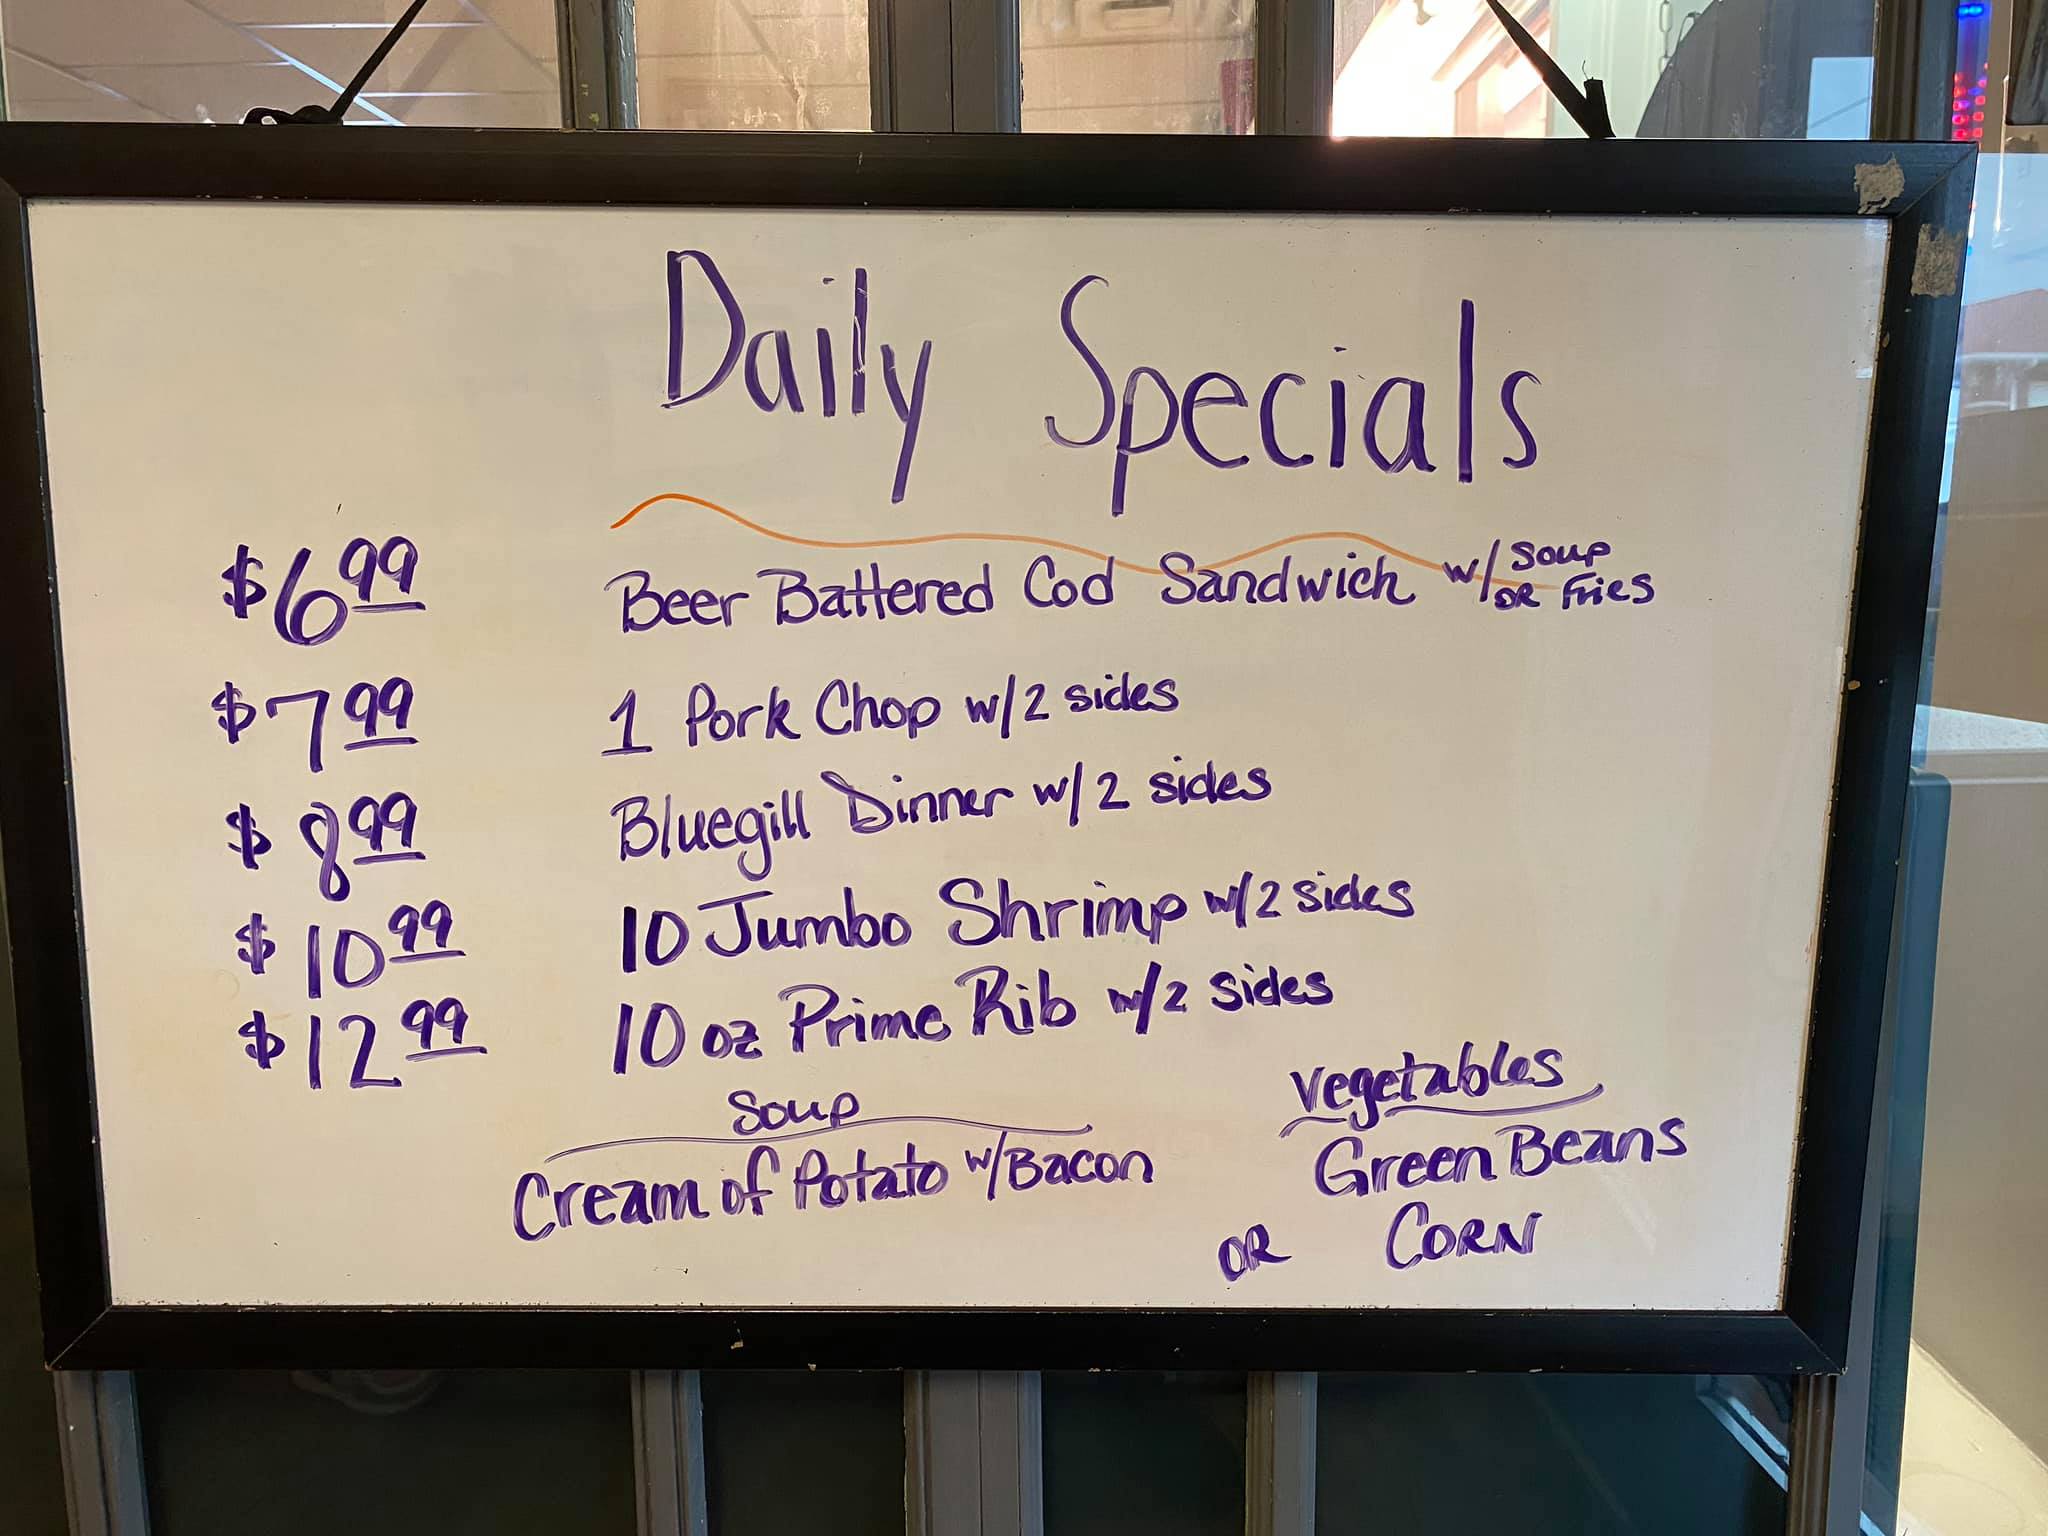 Daily Specials
$6.99 Beer Battered Cod Sandwich w/ Soup OR Fries
$7.99 1 Pork Chop w/2 sides
$8.99 Bluegill Dinner w/2 sides
$10.99 10 Jumbo Shrimp w/2 sides
$12.99 10 oz Prime Rib w/2 sides
Soup
Cream of Potato w/Bacon
Vegetables
Green Beans
OR CORN